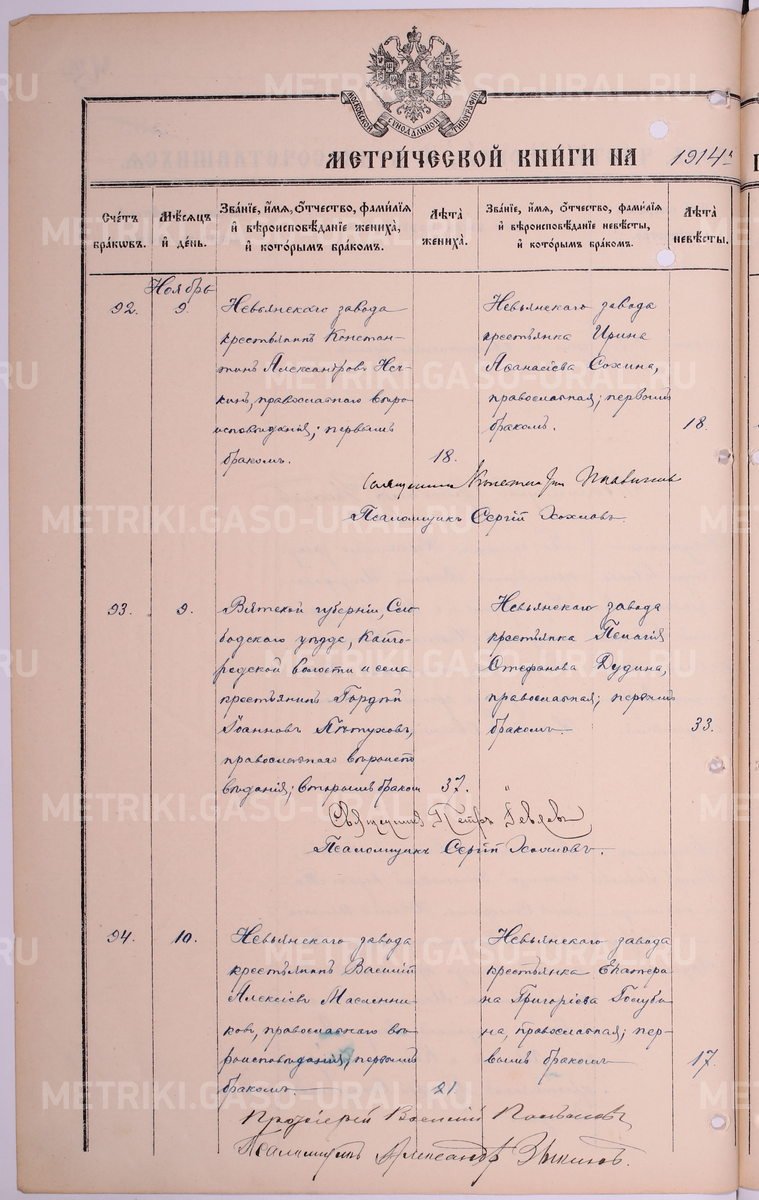 МОСКОВСКОЙ СѴНОДАЛЬНОЙ ТИПОГРАФІИ
МЕТРИ́ЧЕСКОЙ КНИ́ГИ НА 1914 г.
Сче́тъ бра́ковъ.
Мѣ́сяцъ и҆ де́нь.
Зва́нїе, и҆́мя, ѻ҆́тчество, фами́лїя и҆ вѣроисповѣ́данїе жениха̀, и҆ кото́рымъ бра́комъ.
Лѣ́та жениха̀.
Зва́нїе, и҆́мя, ѻ҆́тчество, фами́лїя и҆ вѣроисповѣ́данїе невѣ́сты, и҆ кото́рымъ бра́комъ.
Лѣ́та невѣ́сты.
Ноябрь
92.
9.
Невьянскаго завода
крестьянинъ Констан-
тинъ Александровъ
православнаго вѣро-
исповѣданія; первымъ
бракомъ.
18.
Невьянскаго завода
крестьянка Ирина
Аѳанасіева Сохина,
православная; первымъ
бракомъ.
18.
Священникъ Константинъ
Псаломщикъ Сергій Хохловъ.
93.
9.
Вятской губерніи, Сло-
бодского уѣзда, Кайго-
родской волости и села
крестьянинъ Гордѣй
Іоанновъ Пѣтуховъ,
православнаго вѣроиспо
вѣданія; вторымъ бракомъ
37.
Невьянскаго завода
крестьянка Пелагія
Стефанова Дудина,
православная; первымъ
бракомъ.
33.
Священникъ Петръ
Псаломщикъ Сергій Хохловъ.
94.
10.
Невьянскаго завода
крестьянинъ Василій
Алексіевъ Масленни-
ковъ, православнаго вѣ-
роисповѣданія; первымъ
бракомъ.
21
Невьянскаго завода
крестьянка Екатери-
на Григоріева Голуби-
на, православная; пер-
вымъ бракомъ
17.
Протоіерей Василій
Псаломщикъ Александръ Зыкинъ.
METRIKI.GASO-URAL.RU